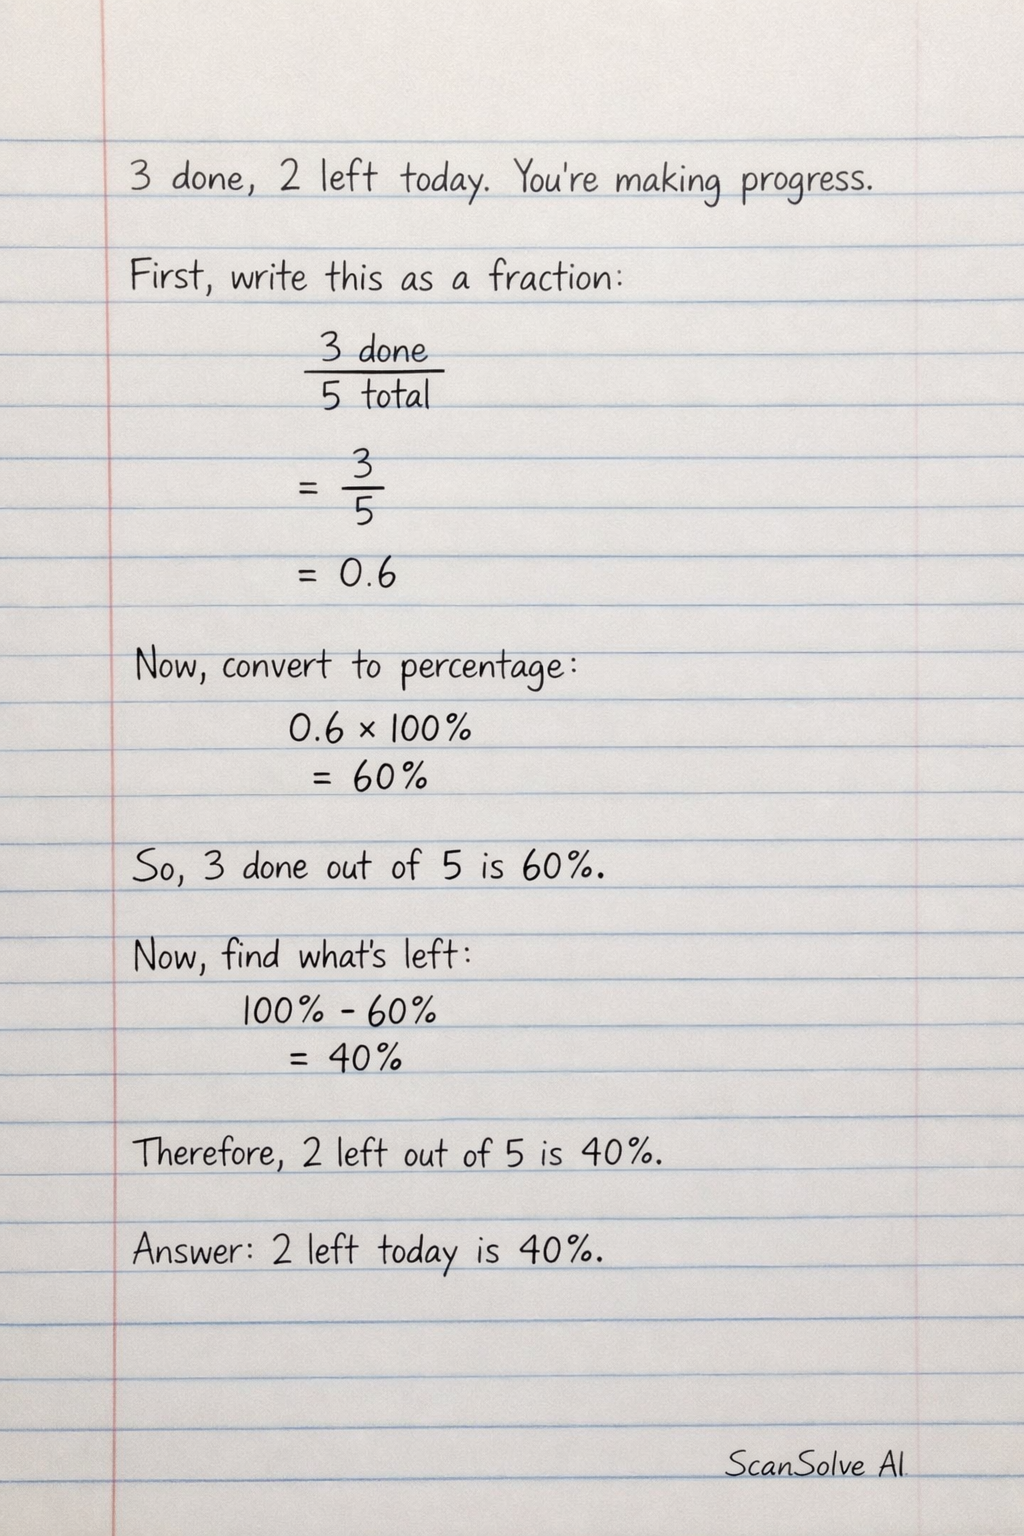 3 done, 2 left today. You're making progress.
First, write this as a fraction:
3 done
5 total
= 3
5
= 0.6
Now, convert to percentage:
0.6 × 100%
= 60%
So, 3 done out of 5 is 60%.
Now, find what's left:
100% - 60%
= 40%
Therefore, 2 left out of 5 is 40%.
Answer: 2 left today is 40%.
ScanSolve AI